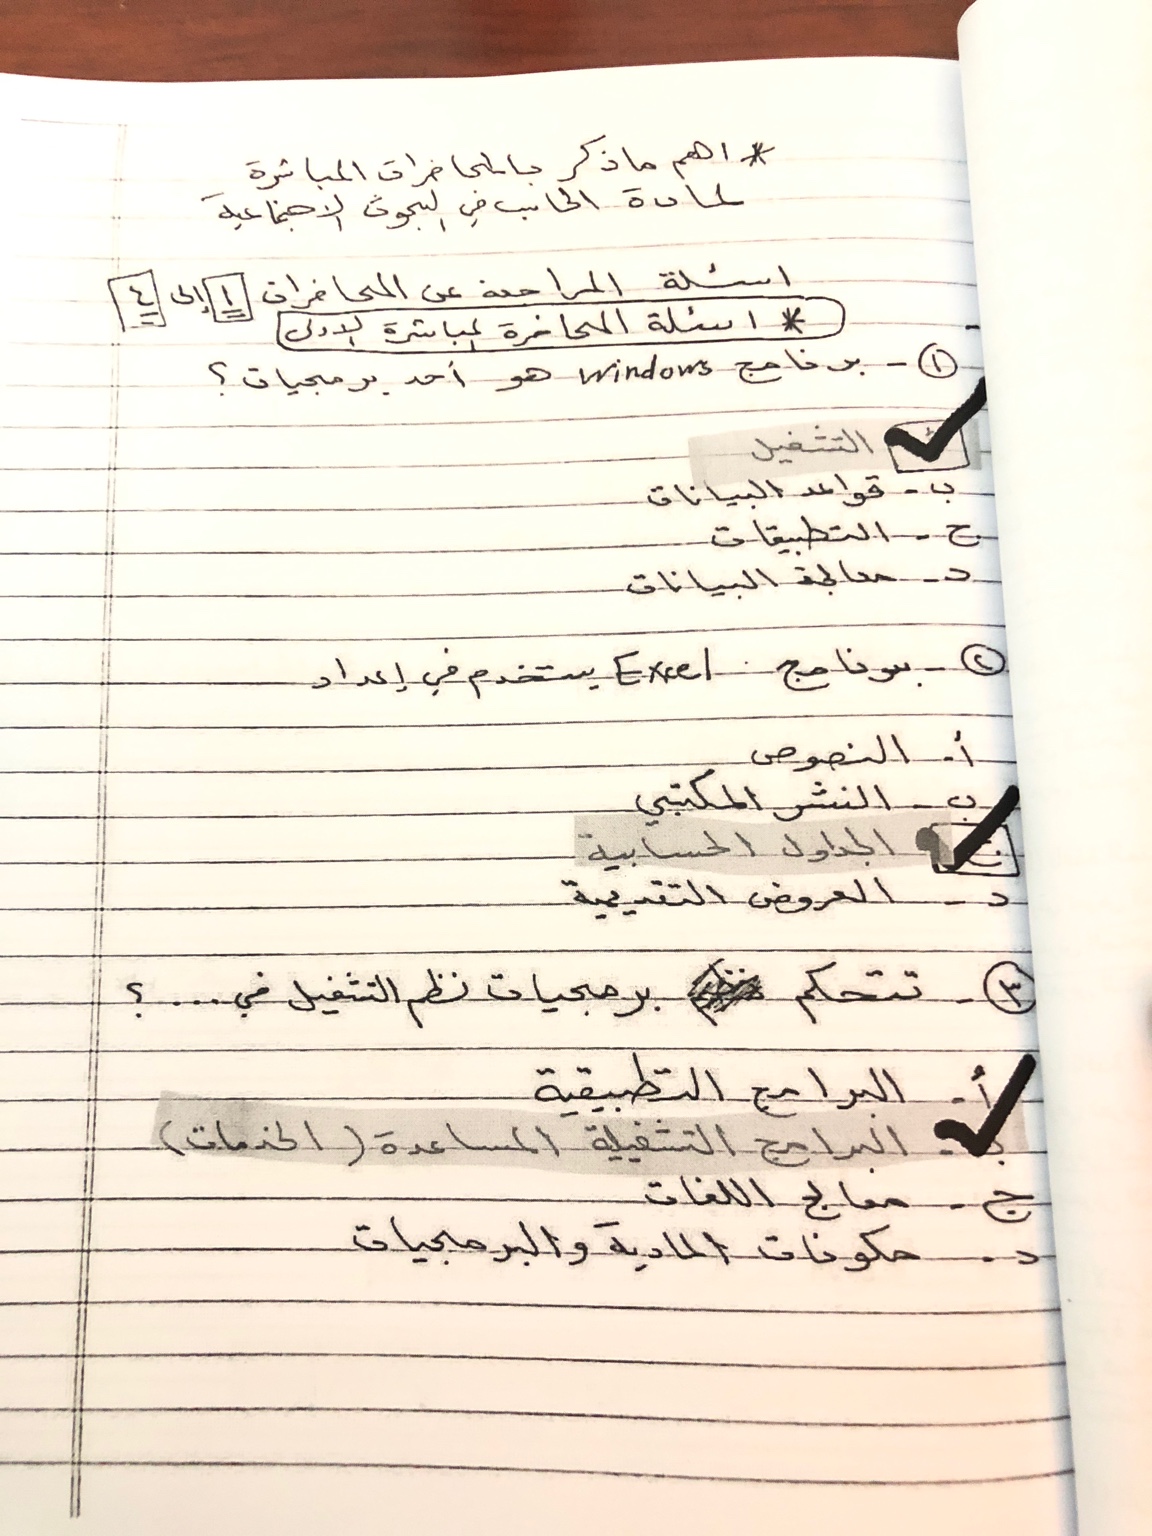 * اهم ماذكر بالمحاضرات المباشرة
لمادة الحاسب في البحوث الاجتماعية
اسئلة المراجعة عن المحاضرات ١ إلى ٤
* اسئلة المحاضرة المباشرة الاولى
١- برنامج windows هو أحد برمجيات ؟
أ التشغيل
ب- قواعد البيانات
ج- التطبيقات
د- معالجة البيانات
٢- برنامج Excel يستخدم في إعداد
أ- النصوص
ب- النشر المكتبي
ج الجداول الحسابية
د- العروض التقديمية
٣- تتحكم برمجيات نظم التشغيل في ... ؟
أ- البرامج التطبيقية
ب- البرامج التشغيلية المساعدة (الخدمات)
ج- معالج اللغات
د- مكونات المادية والبرمجيات